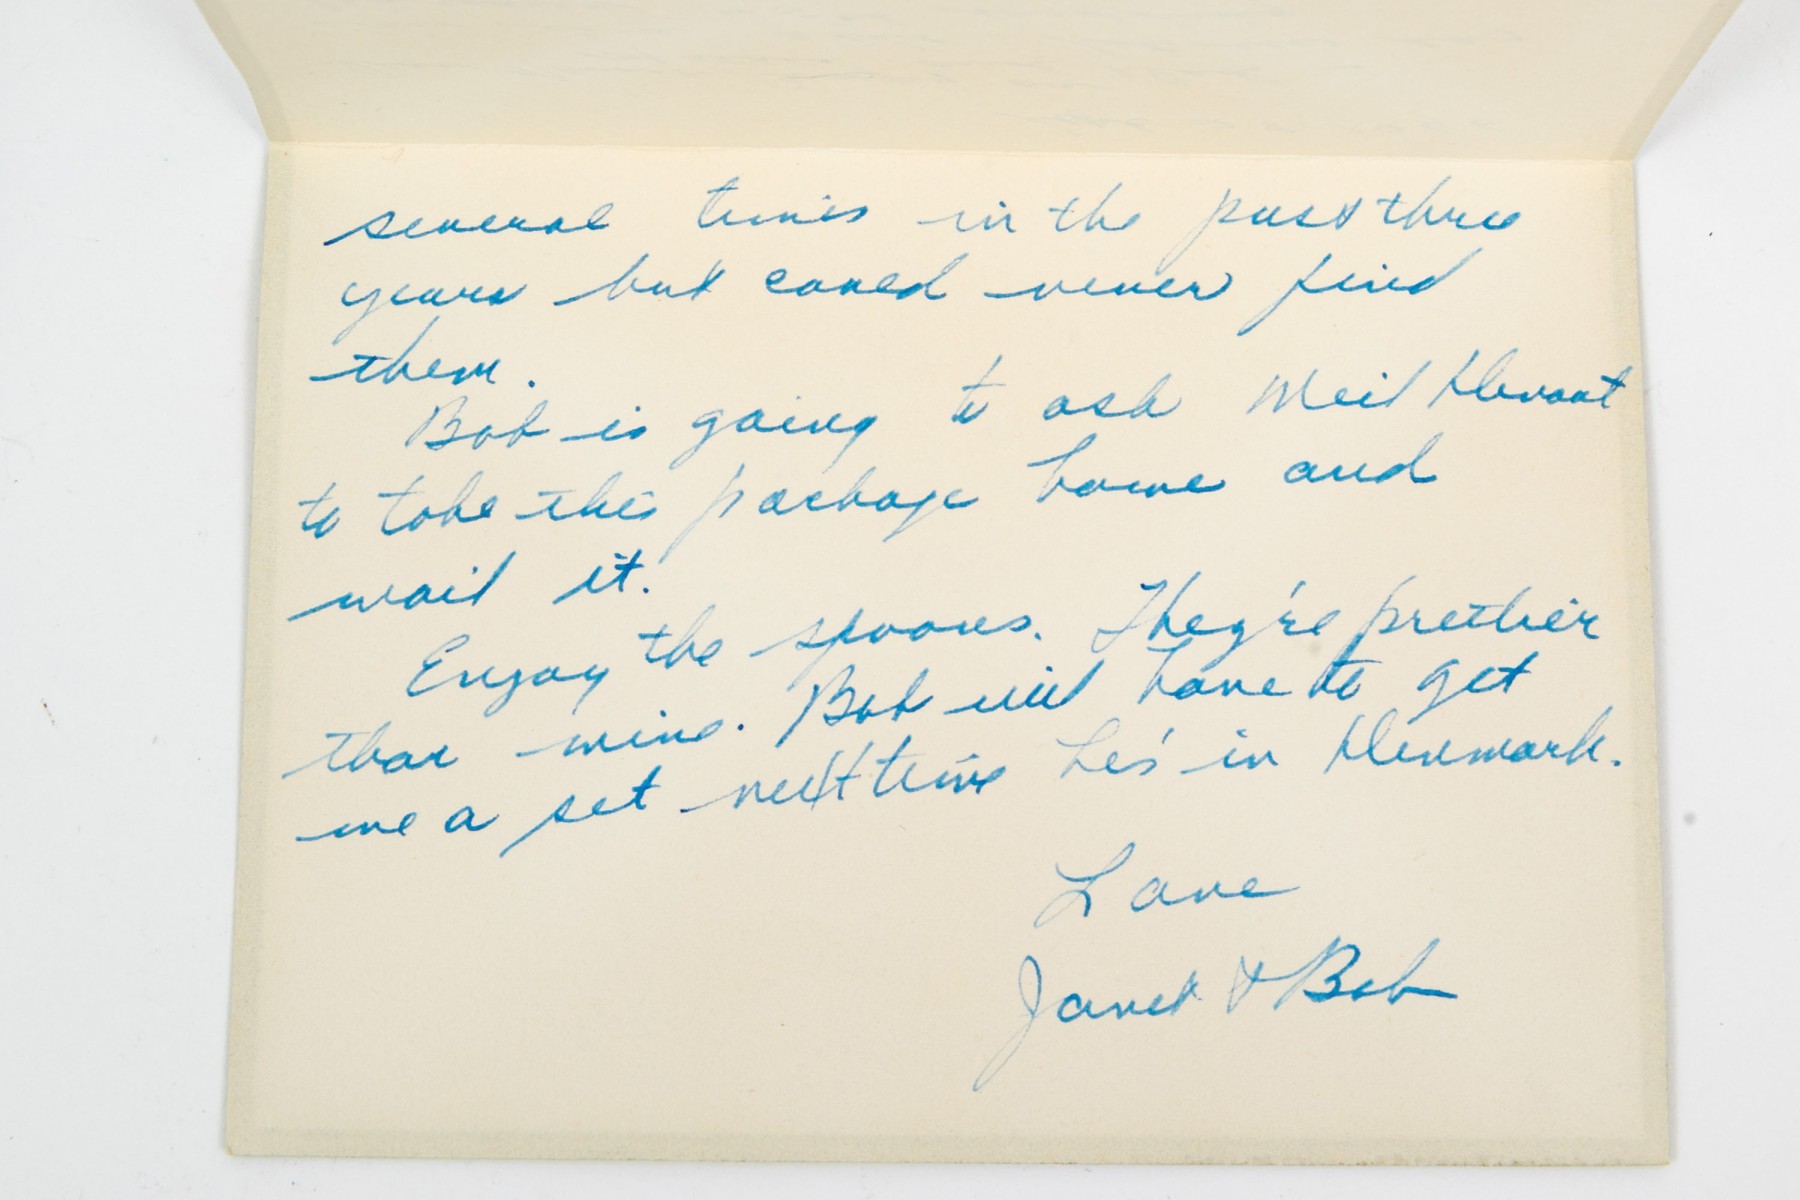 several times in the past three
years but could never find
them.
Bob is going to ask Neil
to take this package home and
mail it.
Enjoy the spoons. They're prettier
than mine. Bob will have to get
me a set next time he's in Denmark.
Love
Janet & Bob